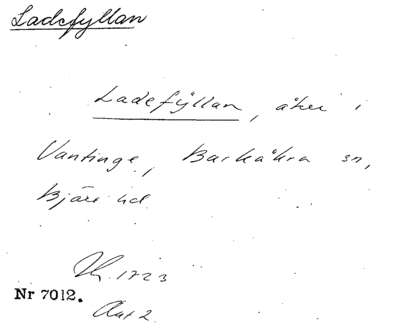 Ladefyllan
Ladefyllan, åker i
Vantinge, Barkåkra sn,
Bjäre hd.
1723
Nr 7012.
Akt 2.